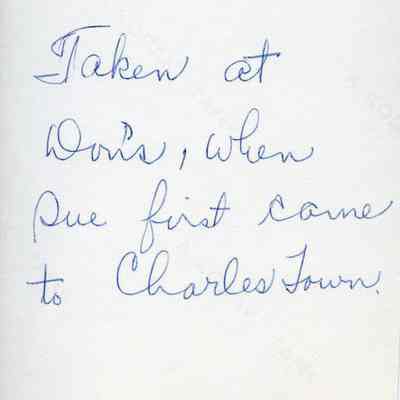 Taken at
Don's, when
Sue first came
to Charles Town.